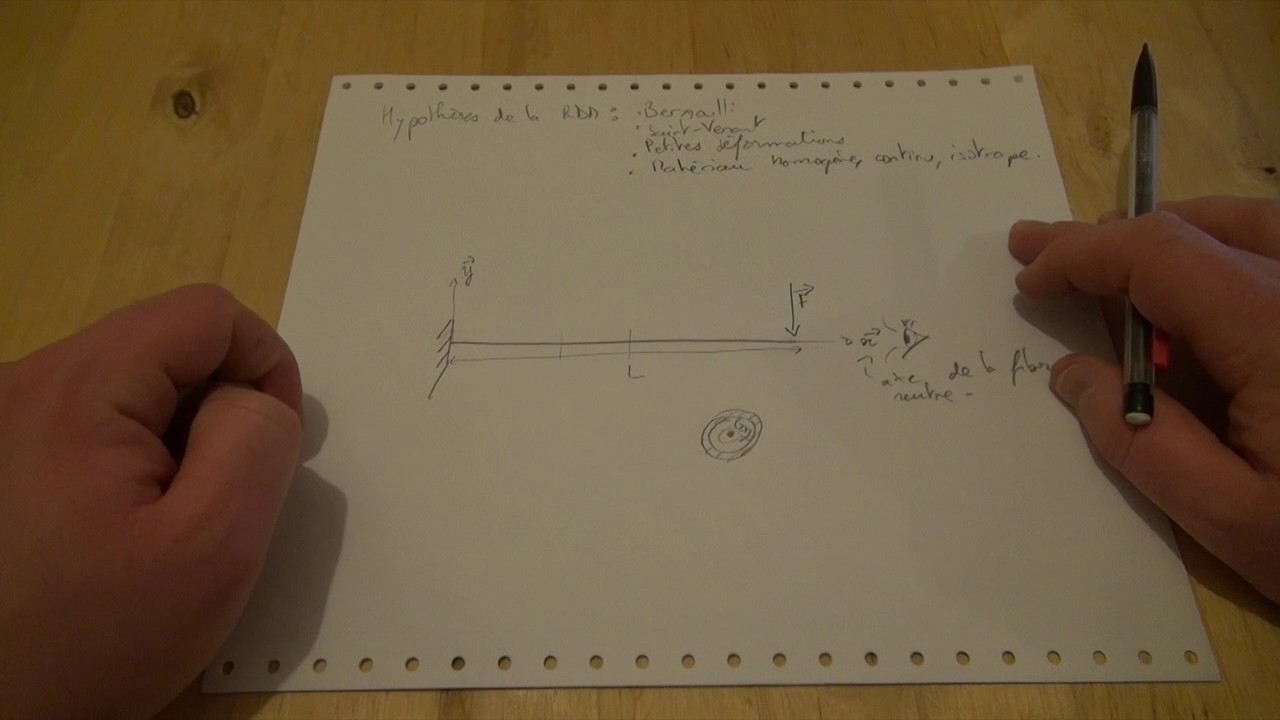 Hypothèses de la RDM : . Bernoulli
. Saint-Venant
. Petites déformations
. Matériau homogène, continu, isotrope.
y
F
x
L
axe de la fibre
neutre -